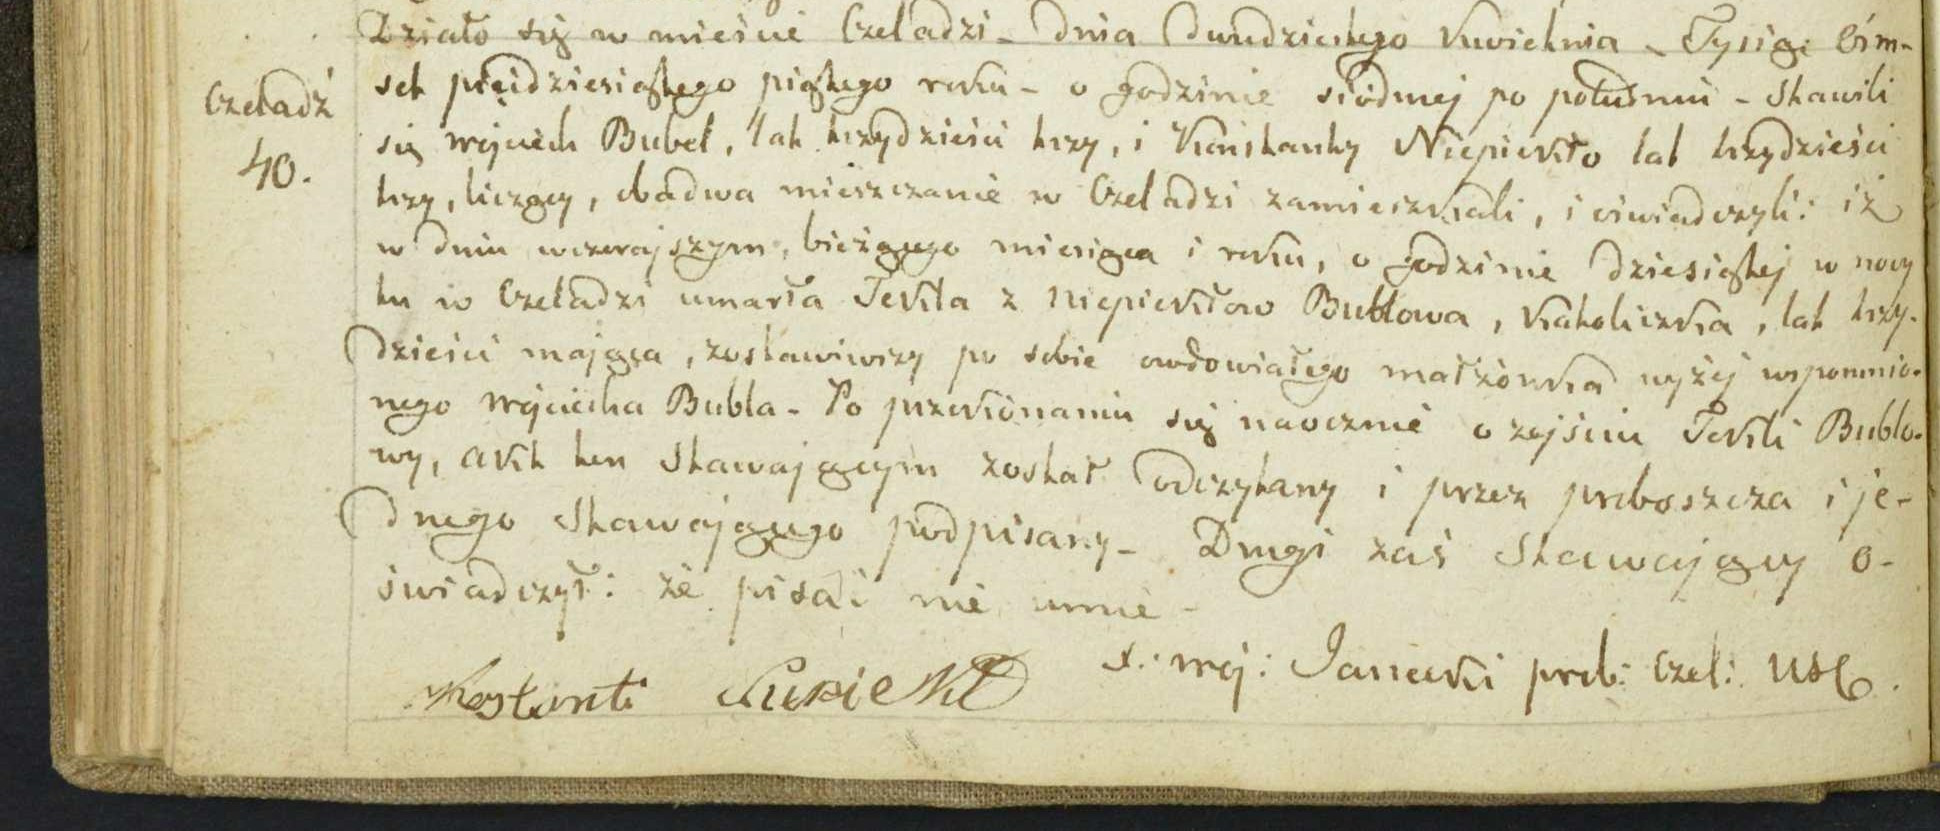 Działo się w mieście Czeladzi – dnia dwudziestego kwietnia – Tysiąc óśm-
Czeladź
set pięćdziesiątego piątego roku – o godzinie siódmej po południu – Stawili
się Wojciech Bubel, lat trzydzieści trzy, i Konstanty Niepiekło lat trzydzieści
40.
trzy, liczący, obadwa mieszczanie w Czeladzi zamieszkali, i oświadczyli: iż
w dniu wczorajszym, bieżącego miesiąca i roku, o godzinie dziesiątej w nocy
tu w Czeladzi umarła Tekla z Niepiekłow Bublowa, katoliczka, lat trzy-
dzieści mająca, zostawiwszy po sobie owdowiałego małżonka wyżej wspomnio-
nego Wojciecha Bubla – Po przekonaniu się naocznie o zejściu Tekli Bublo-
wy, akt ten stawającym został odczytany i przez proboszcza i je-
dnego stawającego podpisany – Drugi zaś stawający o-
świadczył: że pisać nie umie –
X: Woj: Janecki prob: Czel: USC.
Kostanti